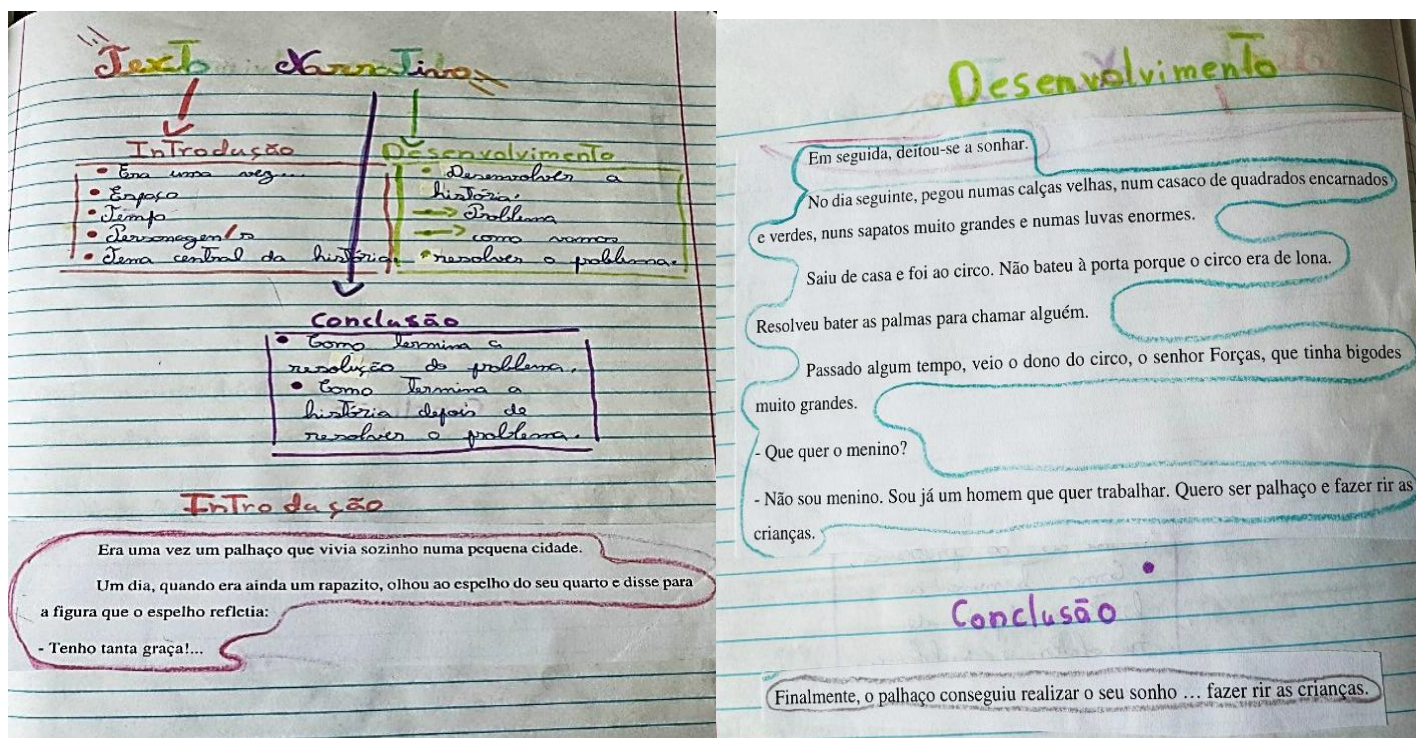 Texto Narrativo
Introdução
• Era uma vez...
• Espaço
• Tempo
• Personagem/s
• Tema central da história.
Desenvolvimento
• Desenvolver a
história.
→ Problema
→ como vamos
resolver o problema.
Conclusão
• Como termina a
resolução do problema.
• Como termina a
história depois de
resolver o problema.
Introdução
Era uma vez um palhaço que vivia sozinho numa pequena cidade.
Um dia, quando era ainda um rapazito, olhou ao espelho do seu quarto e disse para
a figura que o espelho refletia:
- Tenho tanta graça!...
Desenvolvimento
Em seguida, deitou-se a sonhar.
No dia seguinte, pegou numas calças velhas, num casaco de quadrados encarnados
e verdes, nuns sapatos muito grandes e numas luvas enormes.
Saiu de casa e foi ao circo. Não bateu à porta porque o circo era de lona.
Resolveu bater as palmas para chamar alguém.
Passado algum tempo, veio o dono do circo, o senhor Forças, que tinha bigodes
muito grandes.
- Que quer o menino?
- Não sou menino. Sou já um homem que quer trabalhar. Quero ser palhaço e fazer rir as
crianças.
Conclusão
Finalmente, o palhaço conseguiu realizar o seu sonho … fazer rir as crianças.